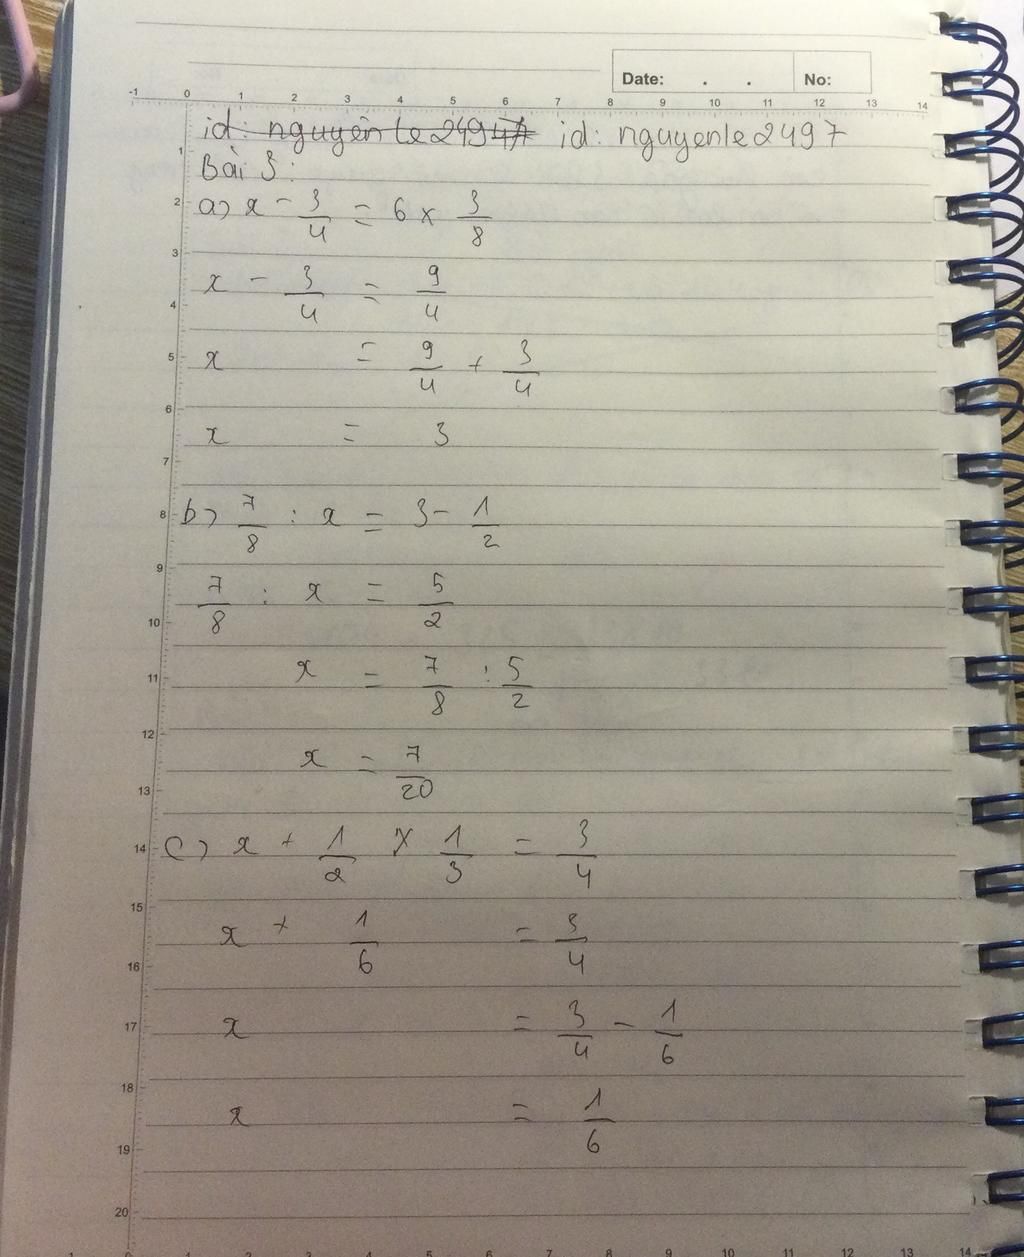 Date: . . No:
-1 0 1 2 3 4 5 6 7 8 9 10 11 12 13 14
id: nguyenle24947 id: nguyenle2497
Bài 3:
a) x - 3/4 = 6 x 3/8
x - 3/4 = 9/4
x = 9/4 + 3/4
x = 3
b) 7/8 : x = 3 - 1/2
7/8 : x = 5/2
x = 7/8 : 5/2
x = 7/20
c) x + 1/2 x 1/3 = 3/4
x + 1/6 = 3/4
x = 3/4 - 1/6
x = 1/6
1
2
3
4
5
6
7
8
9
10
11
12
13
14
15
16
17
18
19
20